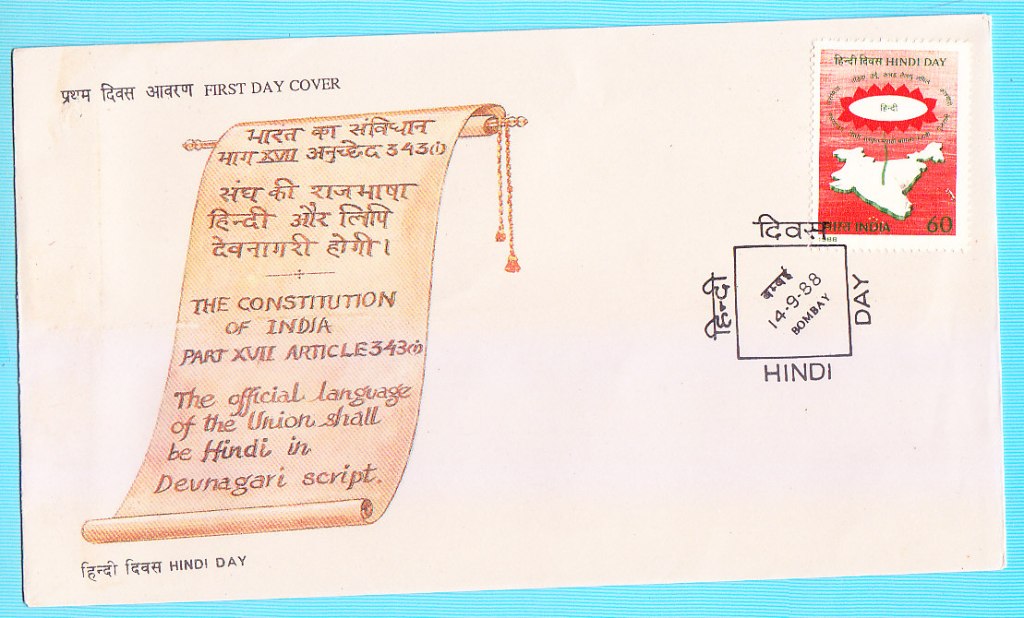 प्रथम दिवस आवरण FIRST DAY COVER
भारत का संविधान
भाग XVII अनुच्छेद 343(i)
संघ की राजभाषा
हिन्दी और लिपि
देवनागरी होगी।
THE CONSTITUTION
OF INDIA
PART XVII ARTICLE 343(i)
The official language
of the Union shall
be Hindi in
Devnagari script.
हिन्दी दिवस HINDI DAY
हिन्दी दिवस HINDI DAY
हिन्दी
भारत INDIA 60
1988
दिवस
हिन्दी
बम्बई
14-9-88
BOMBAY
DAY
HINDI